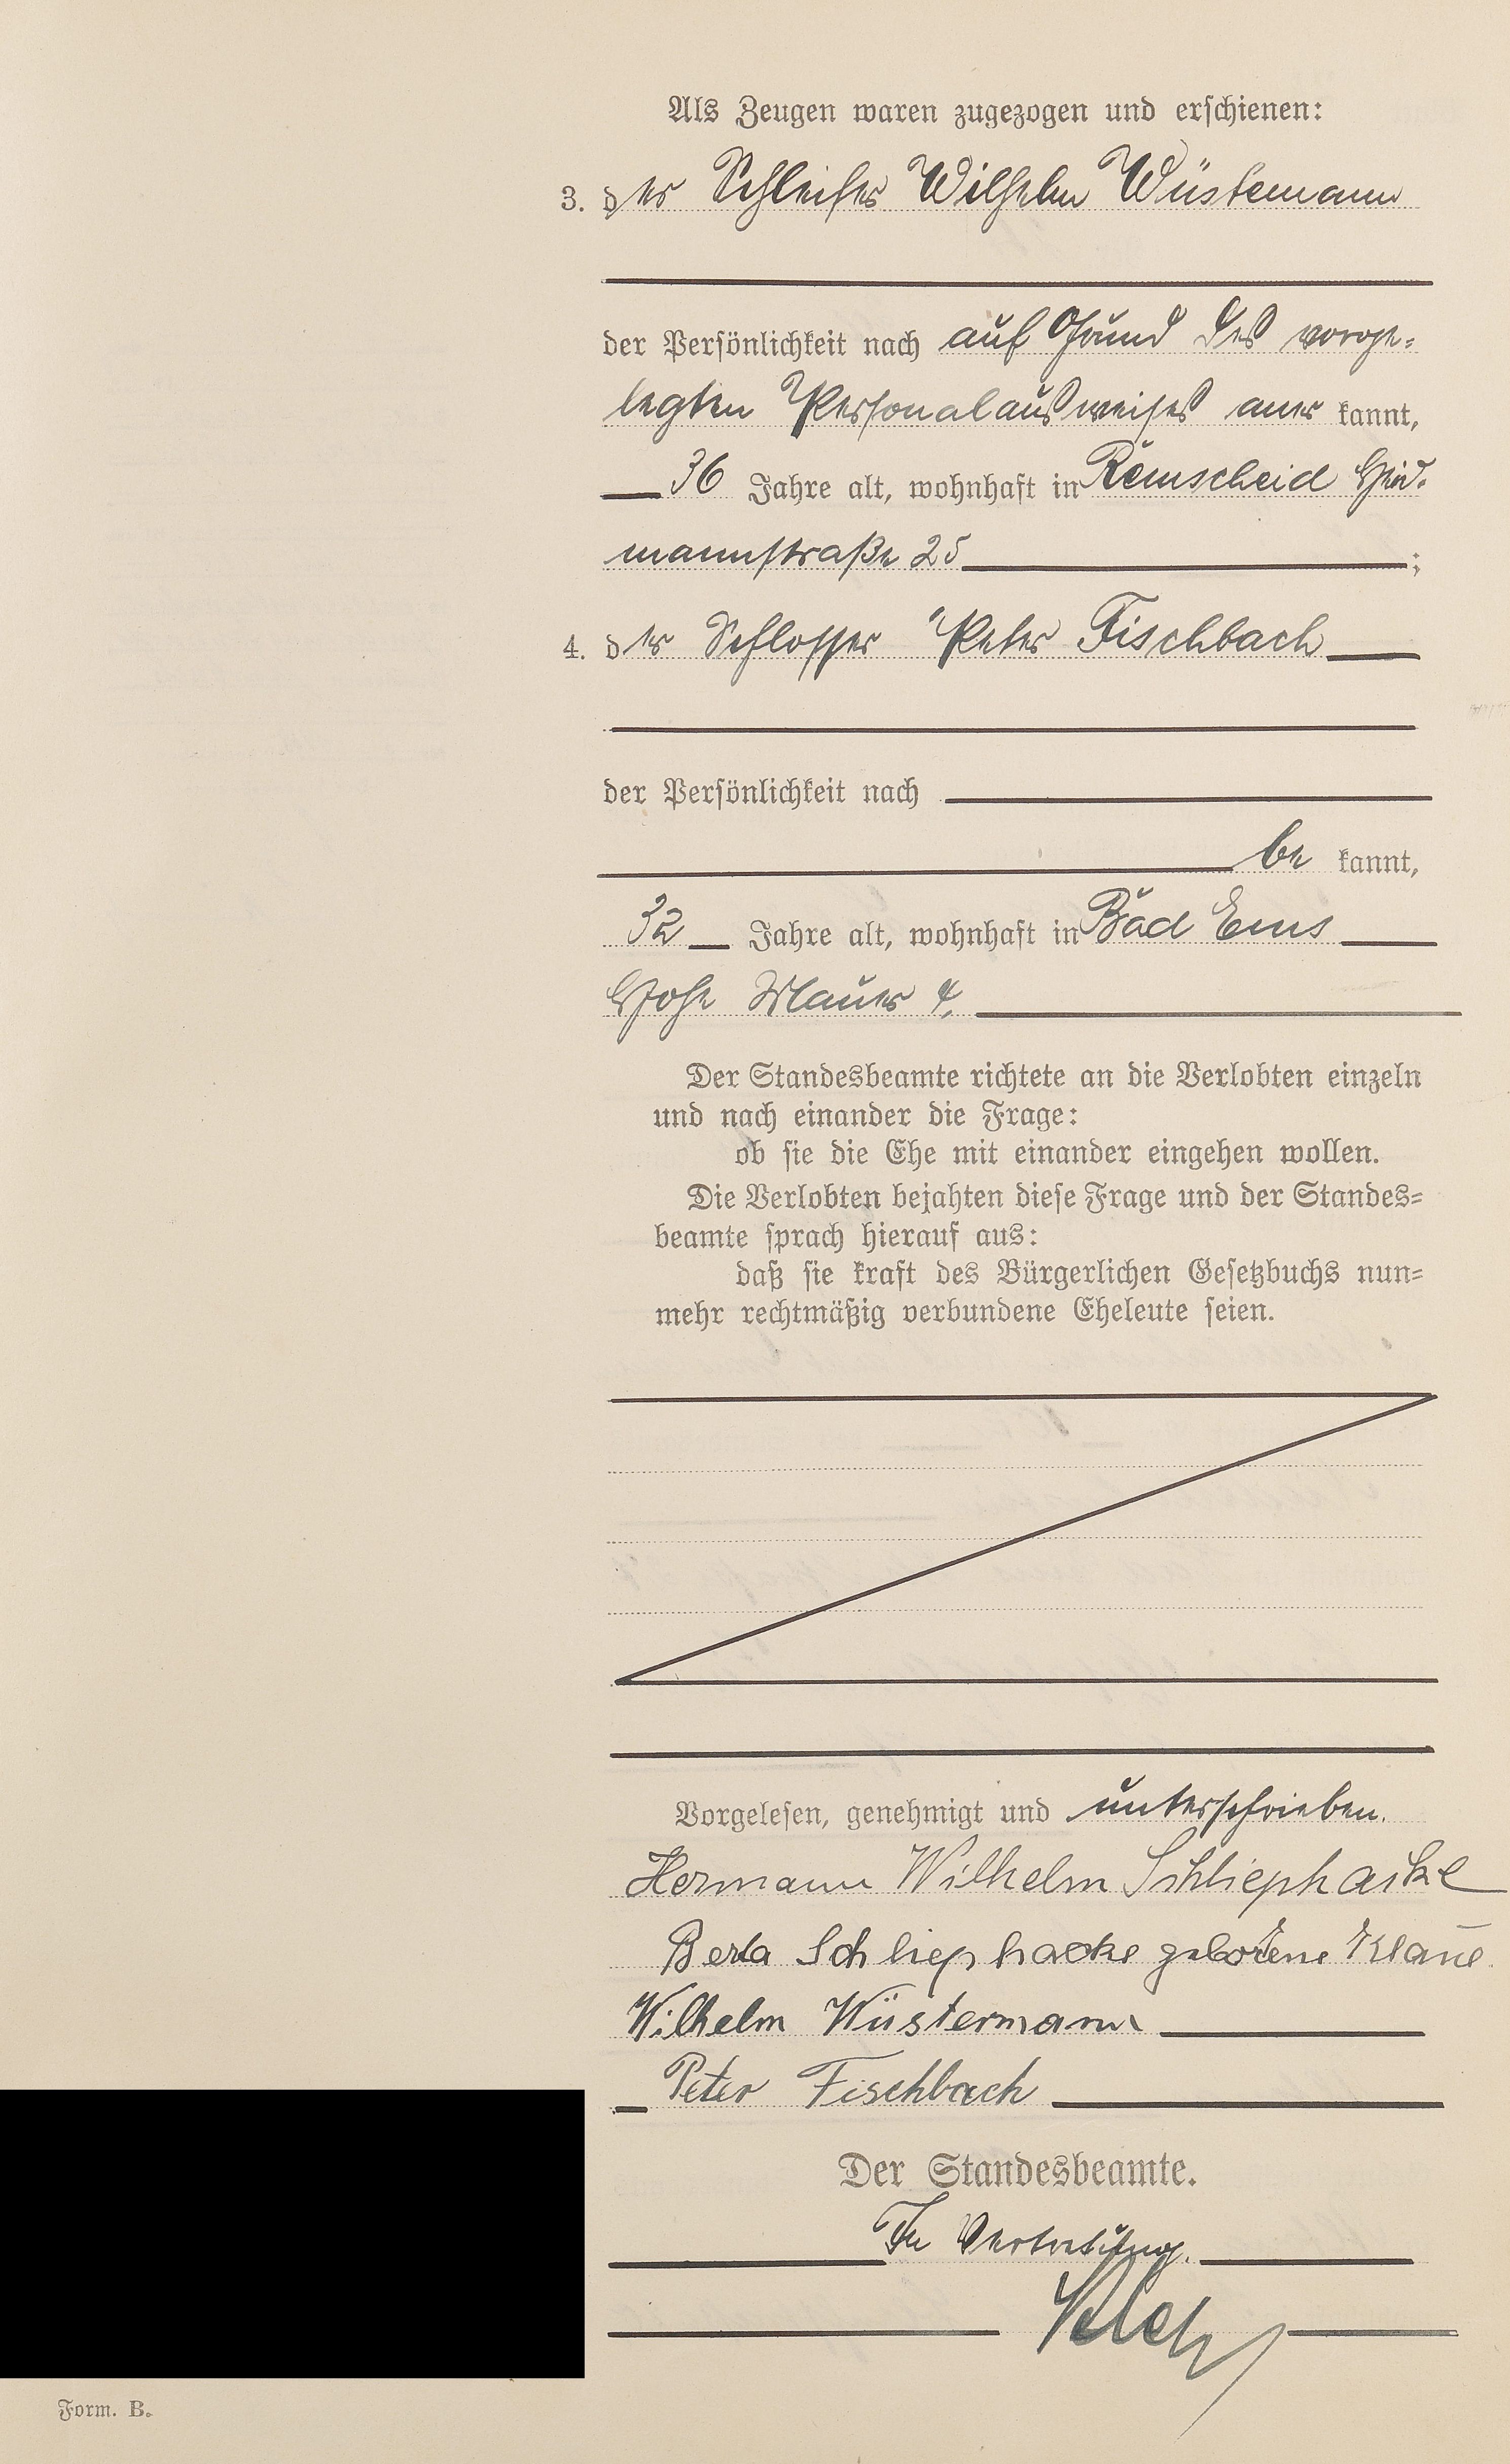 Als Zeugen waren zugezogen und erschienen:
3. der Schleifer Wilhelm Wüstemann
der Persönlichkeit nach auf Grund des vorge-
legten Personalausweises aner kannt,
36 Jahre alt, wohnhaft in Remscheid
mannstraße 25 ;
4. der Schlosser Peter Fischbach
der Persönlichkeit nach
be kannt,
32 Jahre alt, wohnhaft in Bad Ems
Hohe Mauer 4.
Der Standesbeamte richtete an die Verlobten einzeln
und nach einander die Frage:
ob sie die Ehe mit einander eingehen wollen.
Die Verlobten bejahten diese Frage und der Standes-
beamte sprach hierauf aus:
daß sie kraft des Bürgerlichen Gesetzbuchs nun-
mehr rechtmäßig verbundene Eheleute seien.
Vorgelesen, genehmigt und unterschrieben.
Hermann Wilhelm Schliephacke
Berta Schliephacke geborene Klaue
Wilhelm Wüstermann
Peter Fischbach
Der Standesbeamte.
In Vertretung.
Form. B.